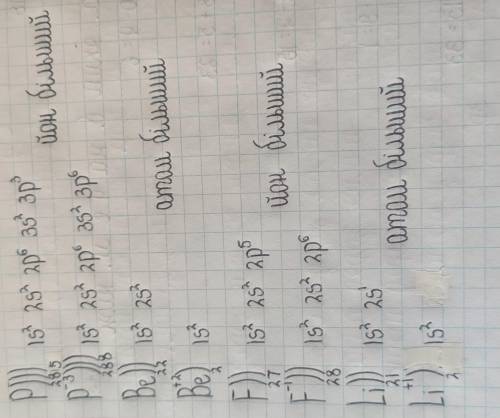 P))) 1s² 2s² 2p⁶ 3s² 3p³
285
йон більший
P⁻³))) 1s² 2s² 2p⁶ 3s² 3p⁶
288
Be)) 1s² 2s²
22
атом більший
Be⁺²) 1s²
2
F)) 1s² 2s² 2p⁵
27
йон більший
F⁻¹)) 1s² 2s² 2p⁶
28
Li)) 1s² 2s¹
21
атом більший
Li⁺¹) 1s²
2